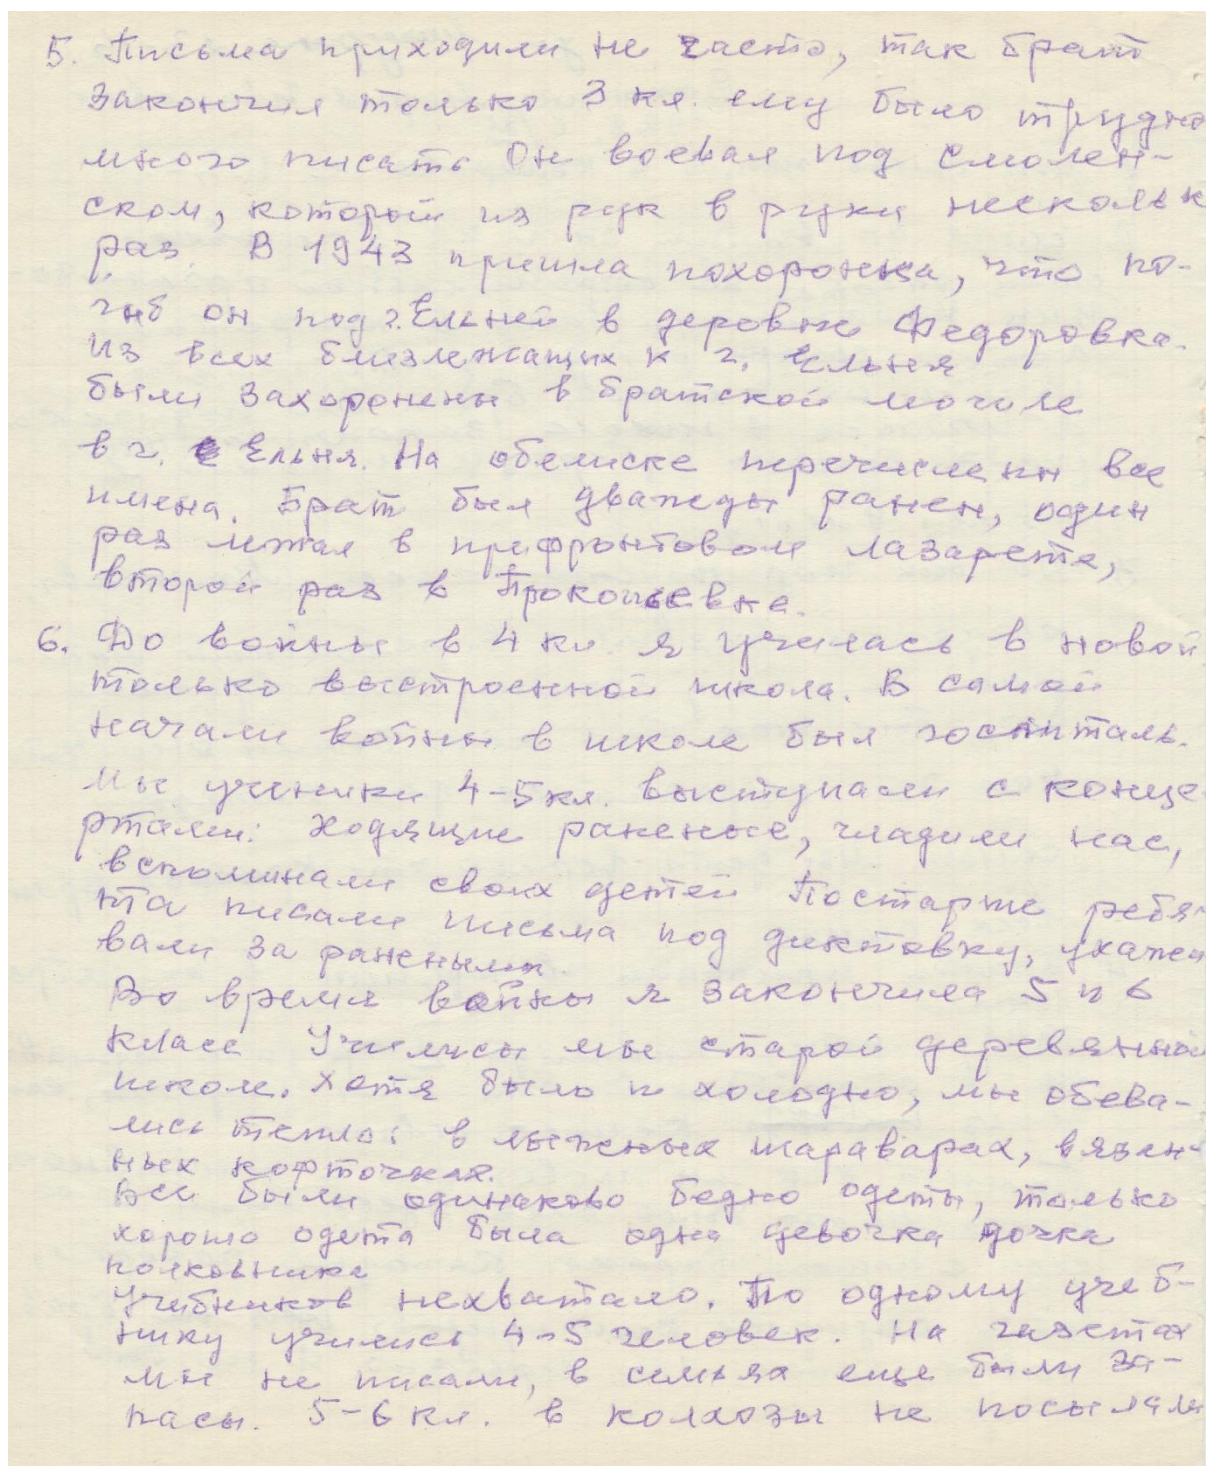 5. Письма приходили не часто, так брат
закончил только 3 кл. ему было трудно
много писать Он воевал под Смолен-
ском, который из рук в руки нескольк
раз. В 1943 пришла похоронка, что по-
гиб он под г. Ельней в деревне Федоровка.
Из всех близлежащих к г. Ельня
были захоронены в братской могиле
в г. Ельня. На обелиске перечислены все
имена. Брат был дважды ранен, один
раз лежал в прифронтовом лазарете,
второй раз в Прокопьевке.
6. До войны в 4 кл. я училась в новой
только выстроенной школа. В самой
начале войны в школе был госпиталь.
Мы ученики 4-5 кл. выступали с конце
ртами: Ходящие раненые, гладили нас,
вспоминали своих детей Постарше ребя-
та писали письма под диктовку, ухажи
вали за ранеными.
Во время войны я закончила 5 и 6
класс Учились мы старой деревянной
школе. Хотя было и холодно, мы обева-
лись тепло: в лыжных шараварах, вязан-
ных кофточках.
Все были одинаково бедно одеты, только
хорошо одета была одна девочка дочка
полковника
Учебников нехватало. По одному учеб-
нику учились 4-5 человек. На газетах
мы не писали, в семьях еще были за-
пасы. 5-6 кл. в колхозы не посылали